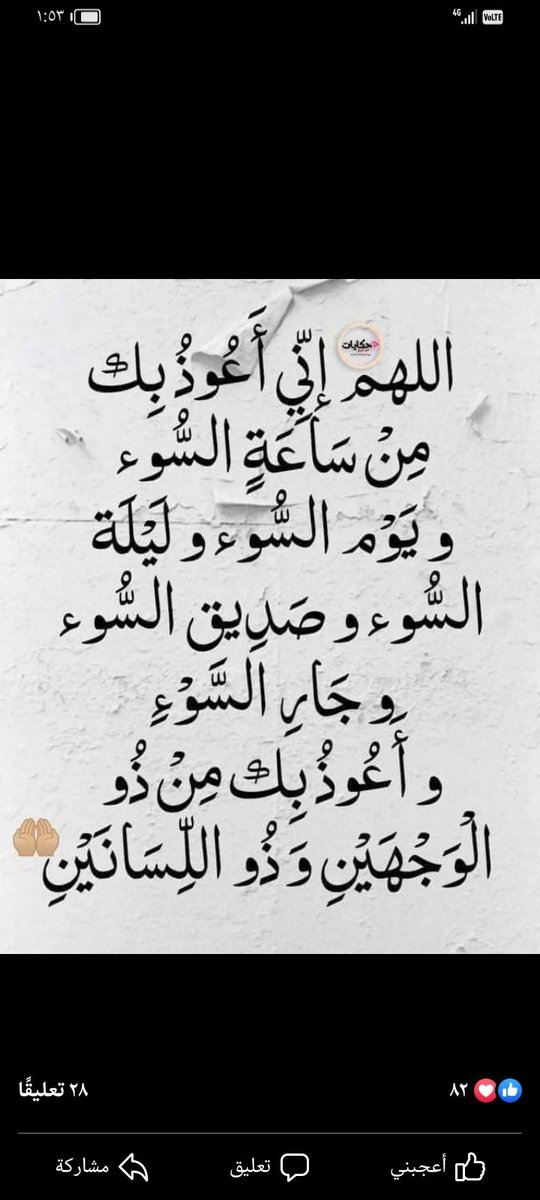 ١:٥٣
4G
VoLTE
حكايات
اللهم إنِّي أَعُوذُ بِك
مِنْ سَاعَةٍ السُّوء
و يَوْم السُّوء و لَيْلَة
السُّوء و صَدِيق السُّوء
و جَارِ السَّوْءِ
و أَعُوذُ بِك مِنْ ذُو
الْوَجْهَيْنِ وَ ذُو اللِّسَانَيْنِ
٨٢
٢٨ تعليقًا
أعجبني
تعليق
مشاركة